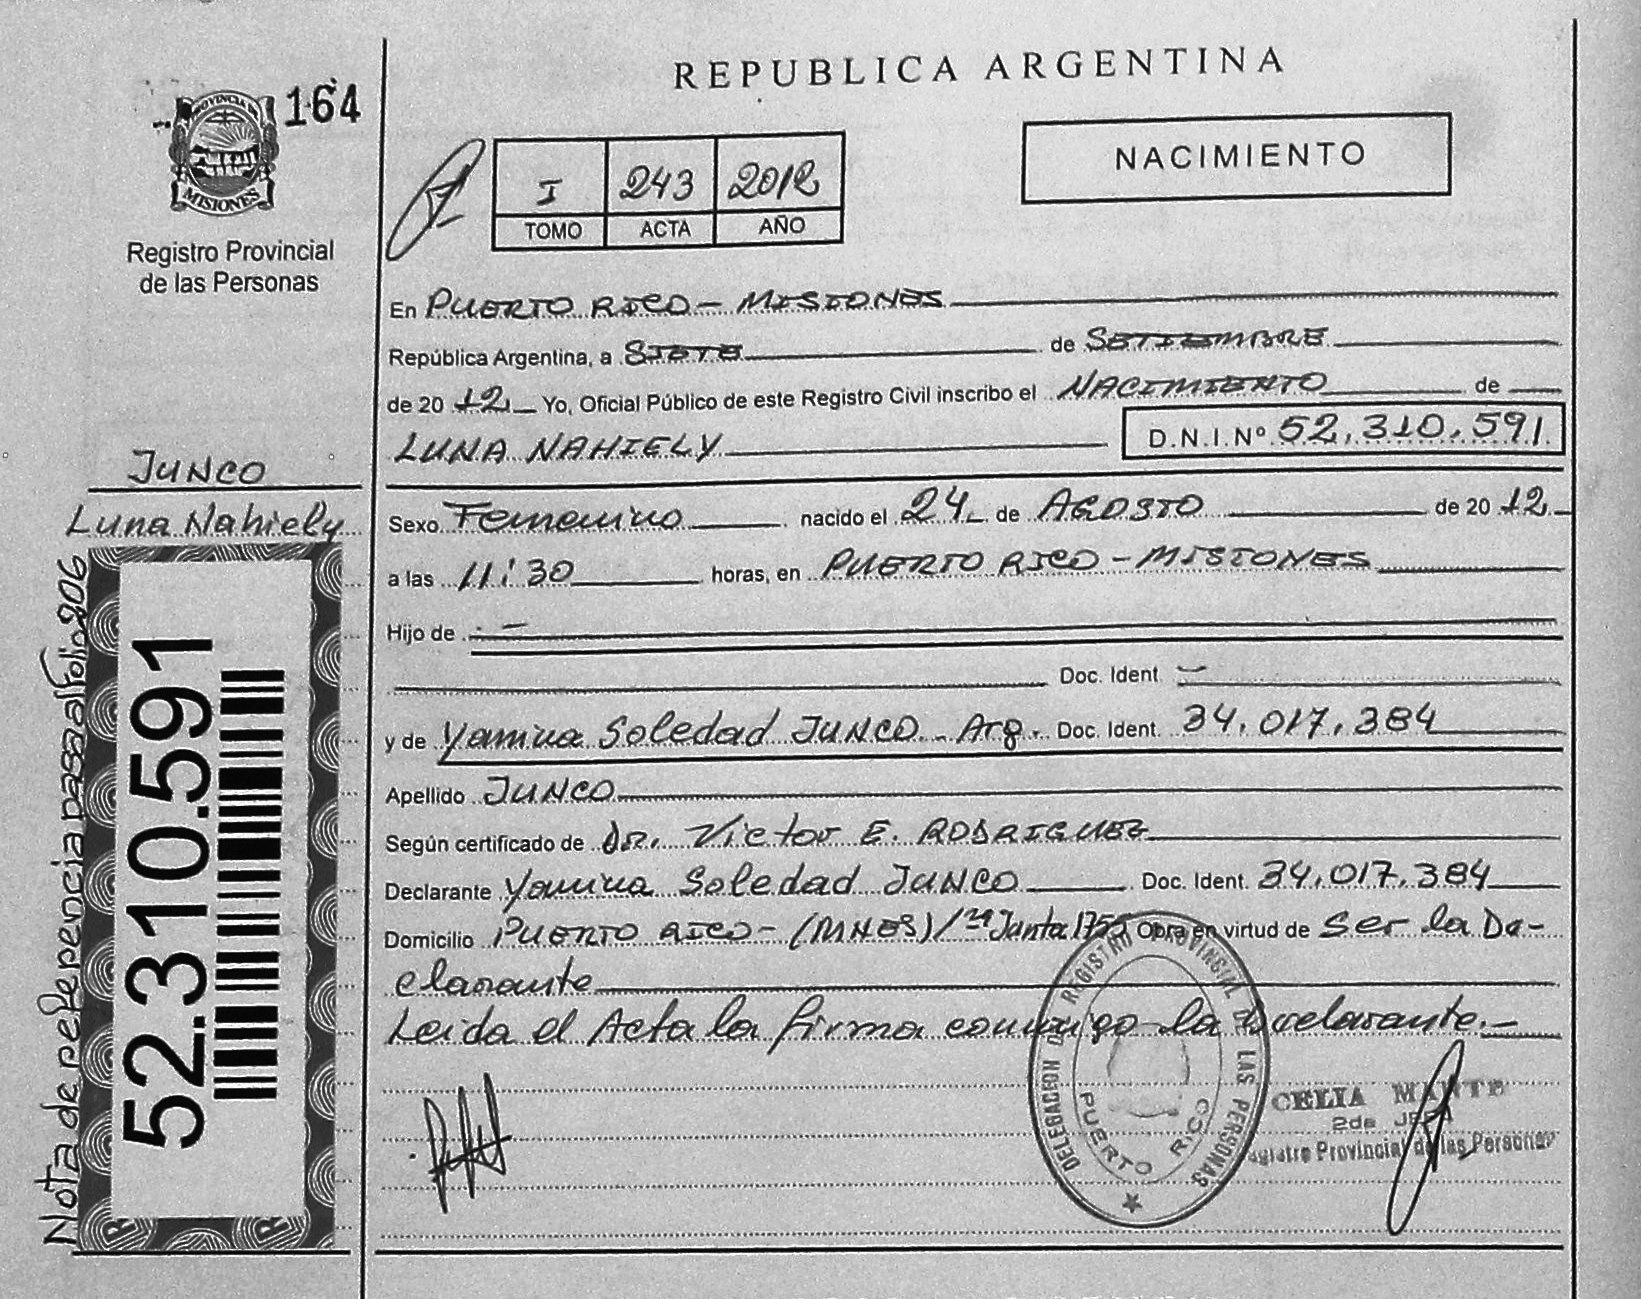 REPUBLICA ARGENTINA
164
PROVINCIA DE
MISIONES
Registro Provincial
de las Personas
I 243 2012
TOMO ACTA AÑO
NACIMIENTO
En PUERTO RICO - MISIONES
República Argentina, a SIETE de SETIEMBRE
de 20 12 Yo, Oficial Público de este Registro Civil inscribo el NACIMIENTO de
LUNA NAHIELY D.N.I.Nº 52.310.591
JUNCO
Luna Nahiely
Sexo Femenino nacido el 24 de AGOSTO de 20 12
a las 11:30 horas, en PUERTO RICO - MISIONES
Hijo de -
Doc. Ident. -
y de Yamina Soledad JUNCO - Arg. Doc. Ident. 34.017.384
Apellido JUNCO
Según certificado de DR. Victor E. RODRIGUEZ
Declarante Yamina Soledad JUNCO Doc. Ident. 34.017.384
Domicilio PUERTO RICO - (MNES) / Junta 1755 Obra en virtud de Ser la De-
clarante
Leida el Acta la firma conmigo la Declarante.-
52.310.591
Nota de referencia pasa al folio 206
DELEGACION DE REGISTRO PROVINCIAL DE LAS PERSONAS
PUERTO RICO
CELIA
2da JEFA
Registro Provincial de las Personas